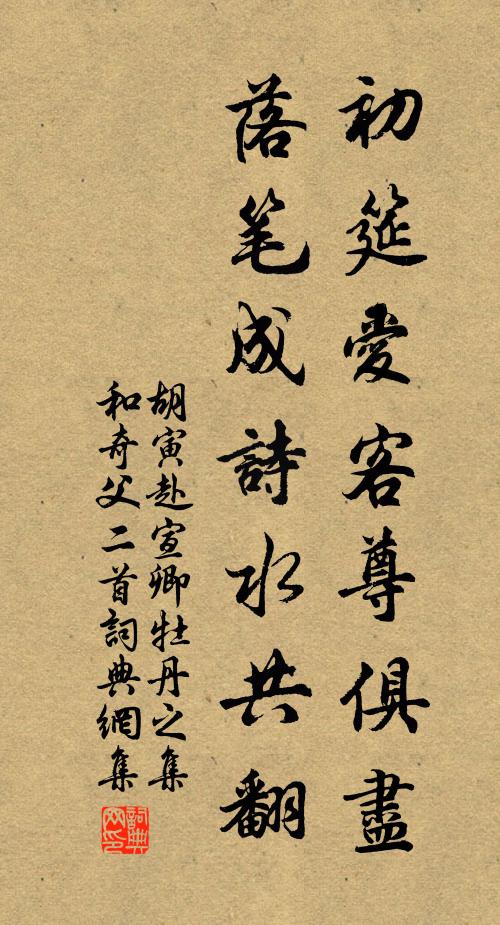 初筵愛客尊俱盡
落笔成詩水共翻
胡寅赴宣卿牡丹之集
和奇父二首詞典網集
詞典网印